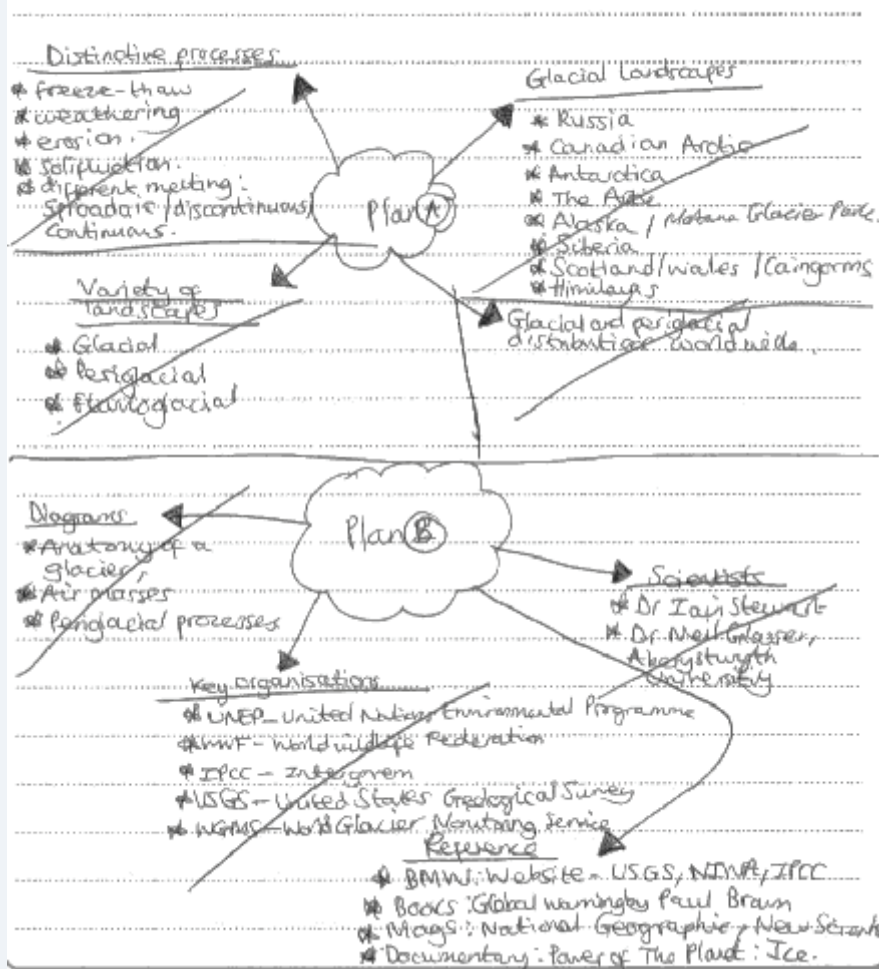 Distinctive processes
* freeze-thaw
* weathering
* erosion.
* Solifluction.
* different melting:
Sproadaic/discontinuous/
Continuous.
Glacial Landscapes
* Russia
* Canadian Arctic
* Antarctica
* The Artic
* Alaska / Motana Glacier Park.
* Siberia
* Scotland/Wales/Cairngorms
* Himilayas
Plan A
Variety of
landscapes
* Glacial
* Periglacial
* Fluvioglacial
Glacial and periglacial
distribution worldwide.
Plan B
Diagrams
* Anatomy of a
glacier,
* Air masses
* Periglacial processes
Scientists
* Dr Iain Stewart
* Dr Neil Glasser,
Aberystwyth
University
Key organisations
* UNEP - United Nations Environmental Programme
* WWF - World wildlife Federation
* IPCC - Intergovern
* USGS - United States Geological Survey
* WGMS - World Glacier Monitoring Service
Reference
* BMW: Website - USGS, NIWA, IPCC
* Books: Global warming by Paul Brown
* Mags: National Geographic, New Scientist
* Documentary: Power of The Planet: Ice.